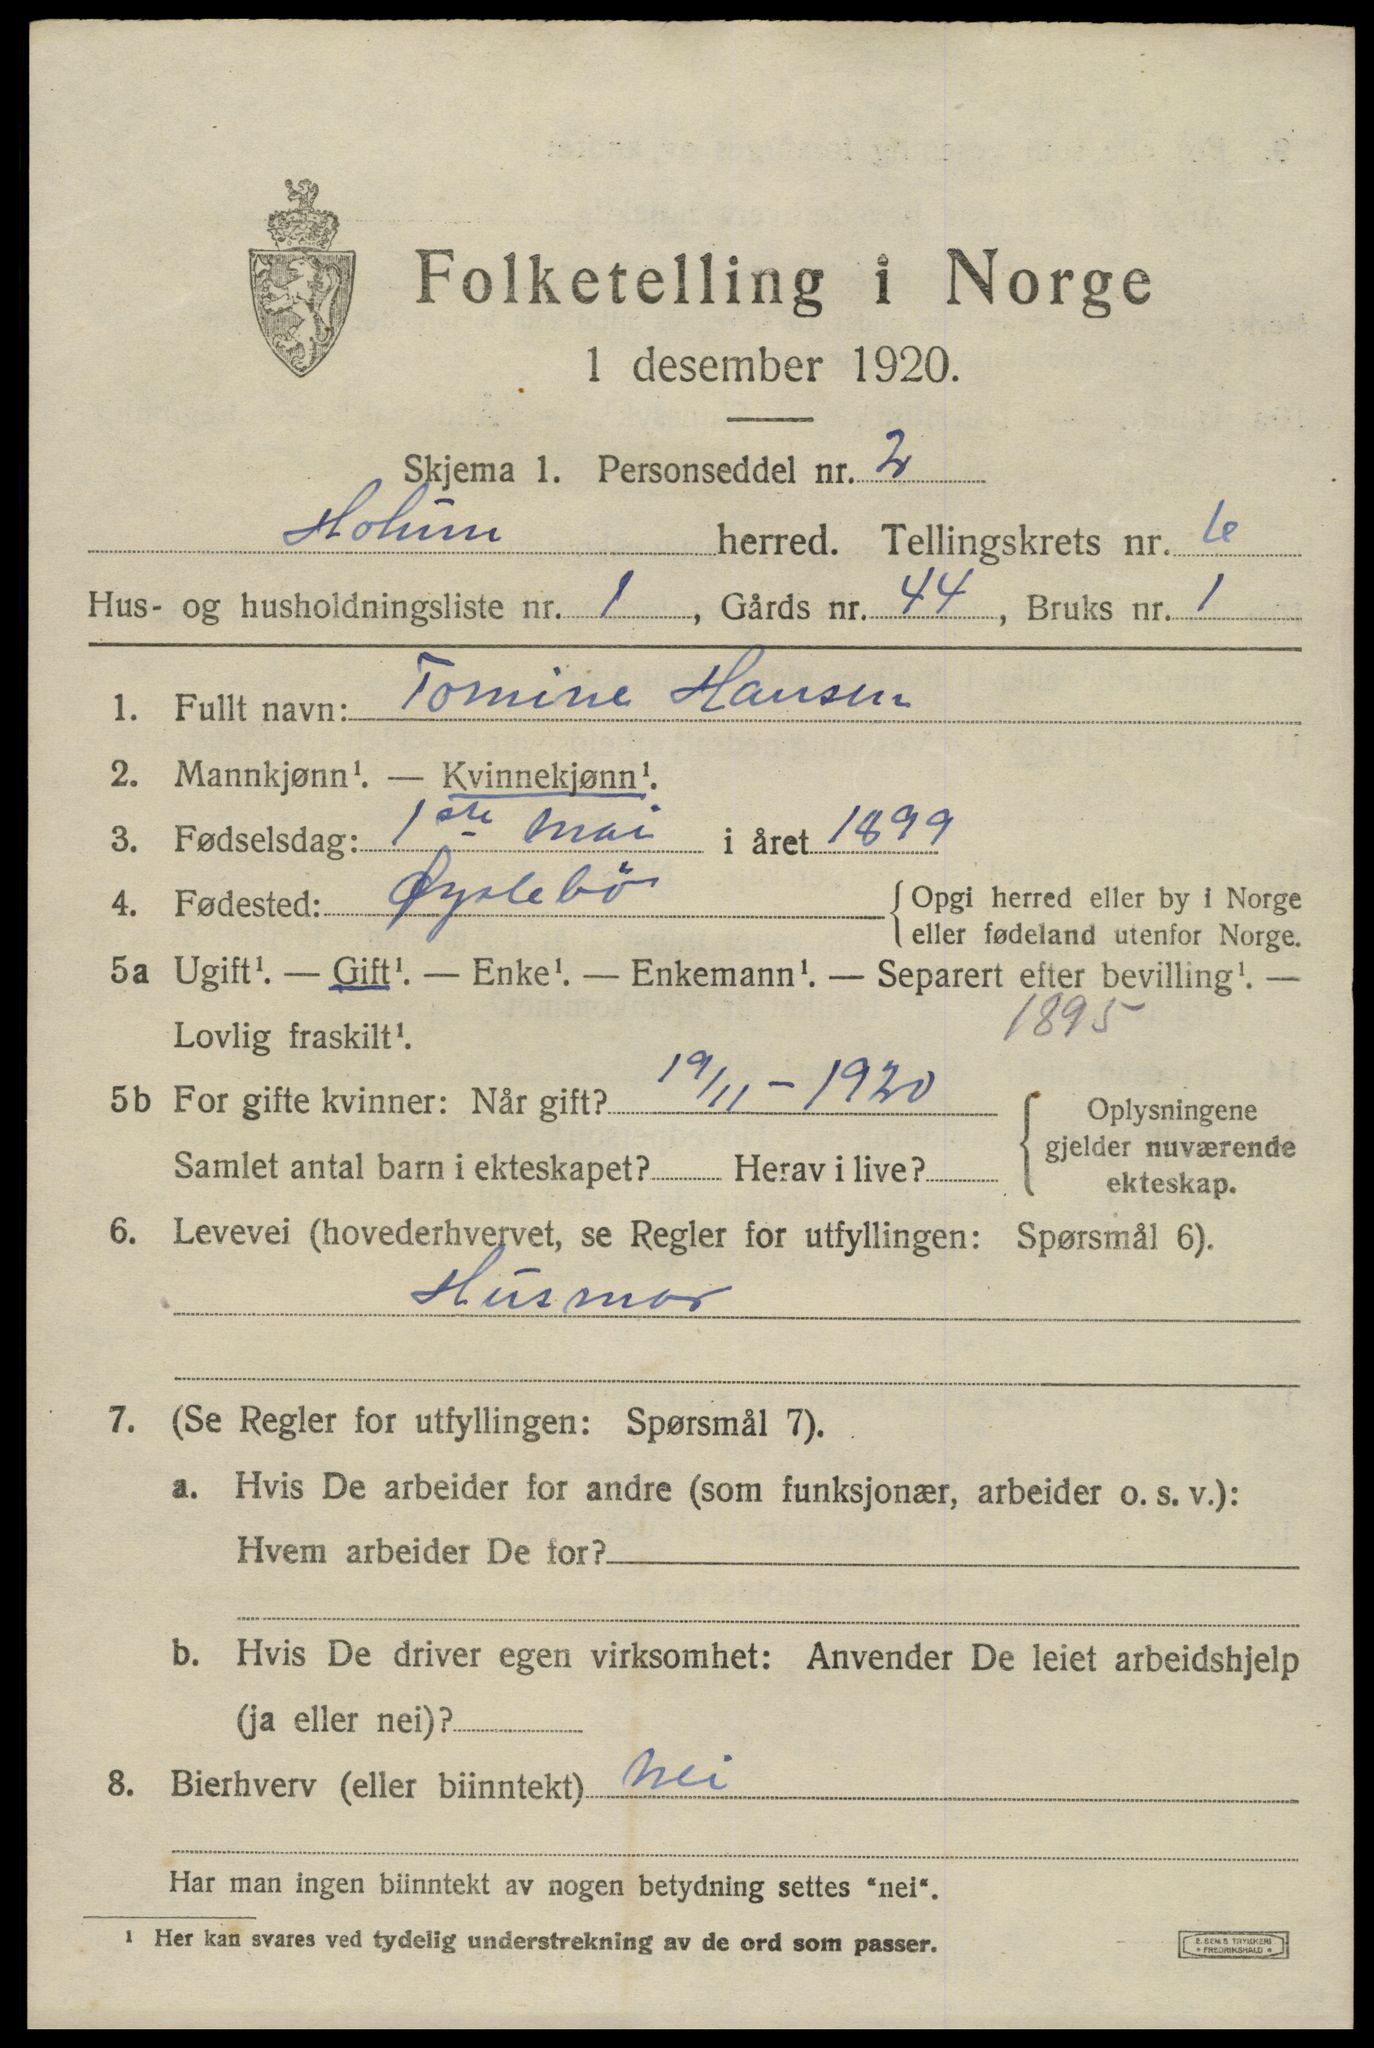 Folketelling i Norge
1 desember 1920.
Skjema 1. Personseddel nr. 2
Holum herred. Tellingskrets nr. 6
Hus- og husholdningsliste nr. 1, Gårds nr. 44, Bruks nr. 1
1. Fullt navn: Tomine Hansen
2. Mannkjønn¹. — Kvinnekjønn¹.
3. Fødselsdag: 1ste mai i året 1899
4. Fødested: Øyslebö { Opgi herred eller by i Norge
eller fødeland utenfor Norge.
5a Ugift¹. — Gift¹. — Enke¹. — Enkemann¹. — Separert efter bevilling¹. —
Lovlig fraskilt¹. 1895
5b For gifte kvinner: Når gift? 19/11 - 1920
Samlet antal barn i ekteskapet? Herav i live?
{ Oplysningene
gjelder nuværende
ekteskap.
6. Levevei (hovederhvervet, se Regler for utfyllingen: Spørsmål 6).
Husmor
7. (Se Regler for utfyllingen: Spørsmål 7).
a. Hvis De arbeider for andre (som funksjonær, arbeider o. s. v.):
Hvem arbeider De for?
b. Hvis De driver egen virksomhet: Anvender De leiet arbeidshjelp
(ja eller nei)?
8. Bierhverv (eller biinntekt) Nei
Har man ingen biinntekt av nogen betydning settes "nei".
¹ Her kan svares ved tydelig understrekning av de ord som passer.
E. SEM'S TRYKKERI
* FREDRIKSHALD *